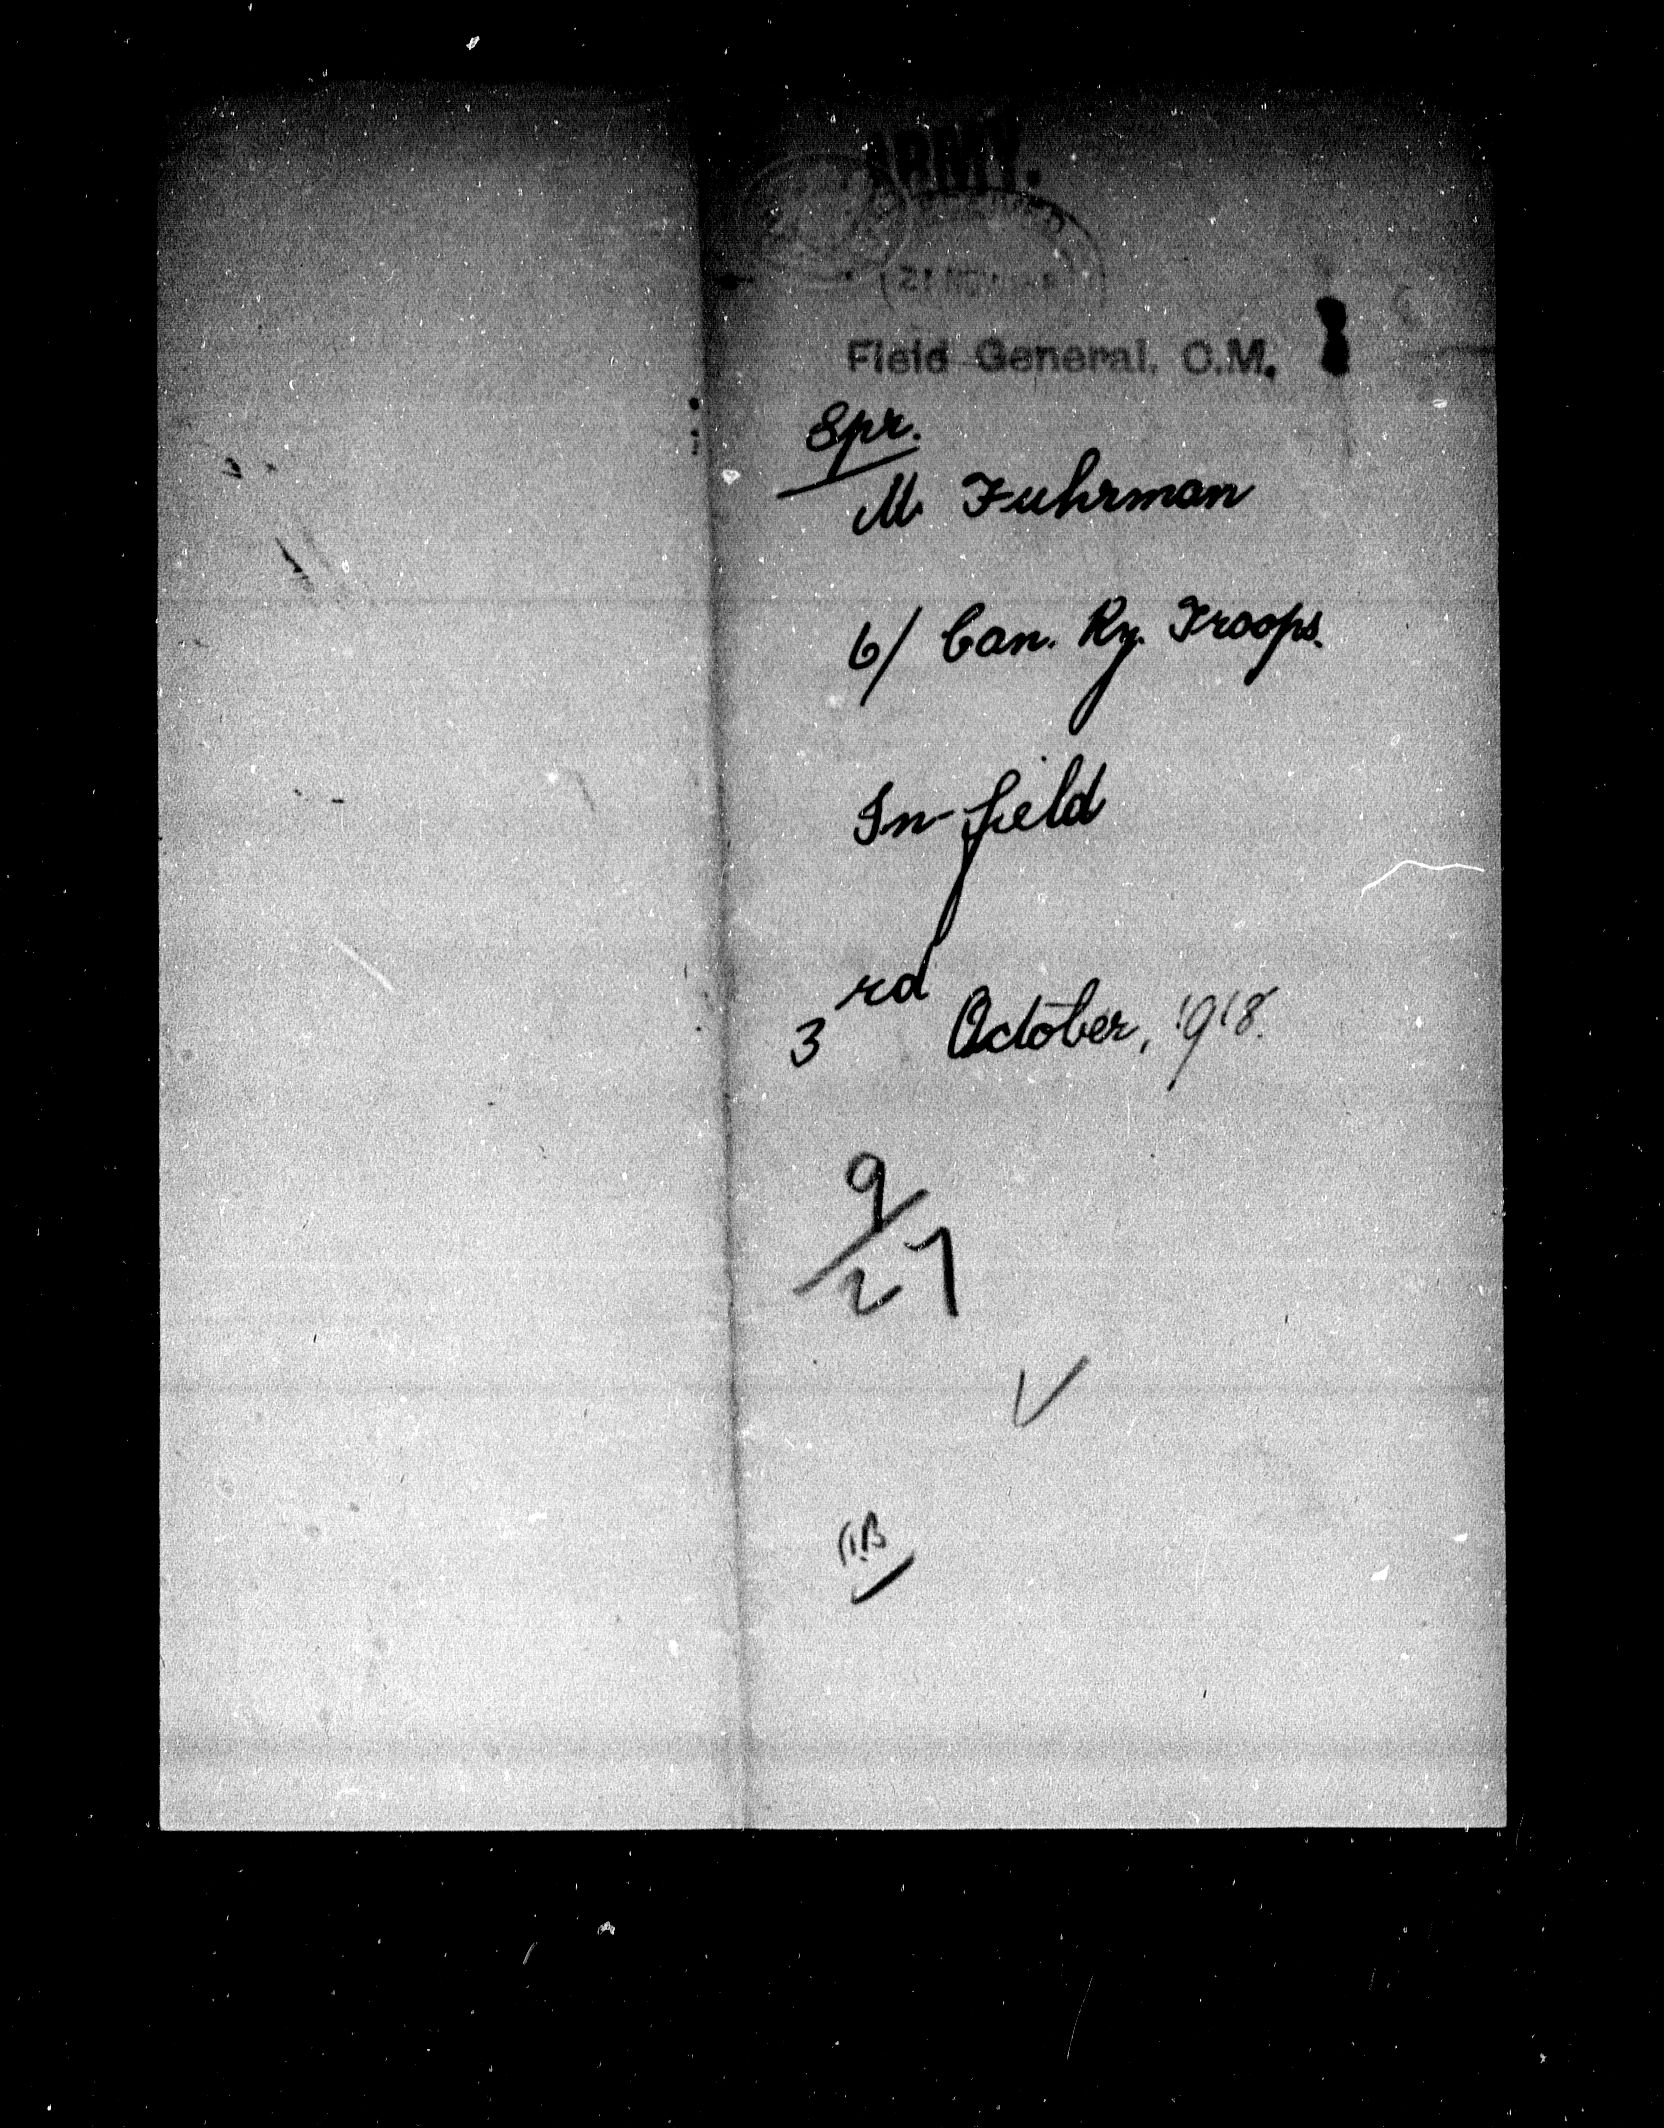 ARMY.
21 NOV
Field General. C.M.
Spr.
M. Fuhrman
6/ Can. Ry. Troops.
In field
3rd October, 1918.
9/27